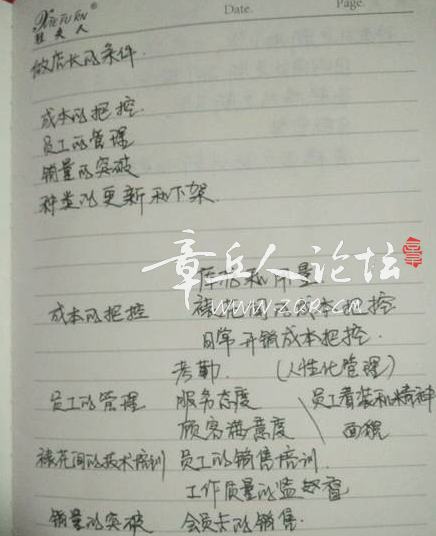 Date.
Page.
做店长的条件.
成本的把控.
员工的管理
销量的突破
种类的更新和下架.
章丘人论坛
成本的把控
成本把控
日常开销成本把控.
考勤. (人性化管理)
员工的管理 服务态度 员工着装和精神
顾客满意度 面貌
裱花间的技术培训 员工的销售培训.
工作质量的监督
销量的突破 会员卡的销售.